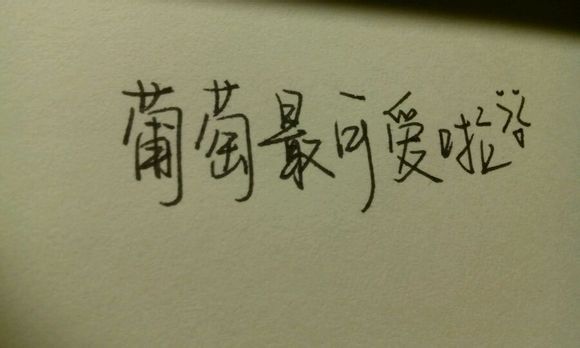 葡萄最可爱啦